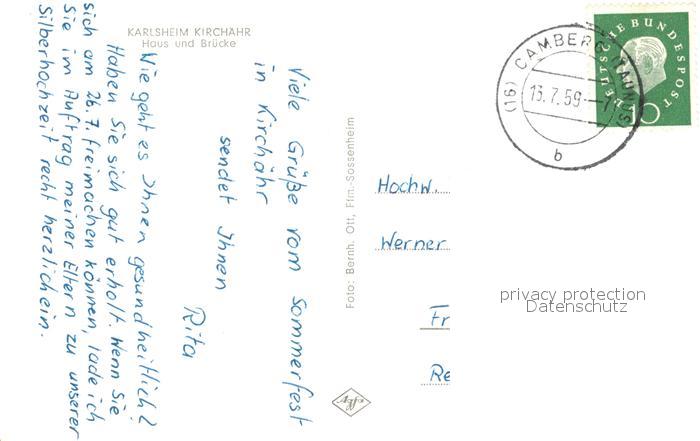 KARLSHEIM KIRCHÄHR
Haus und Brücke
Viele Grüße vom Sommerfest
in Kirchähr
sendet Ihnen
Rita
Wie geht es Ihnen gesundheitlich?
Haben Sie sich gut erholt. Wenn Sie
sich am 26.7. freimachen können, lade ich
Sie im Auftrag meiner Eltern zu unserer
Silberhochzeit recht herzlich ein.
Foto: Bernh. Ott, Ffm.-Sossenheim
Agfa
DEUTSCHE BUNDESPOST
(16) CAMBERG (TAUNUS)
13.7.59
b
Hochw.
Werner
Fr
Re
privacy protection
Datenschutz